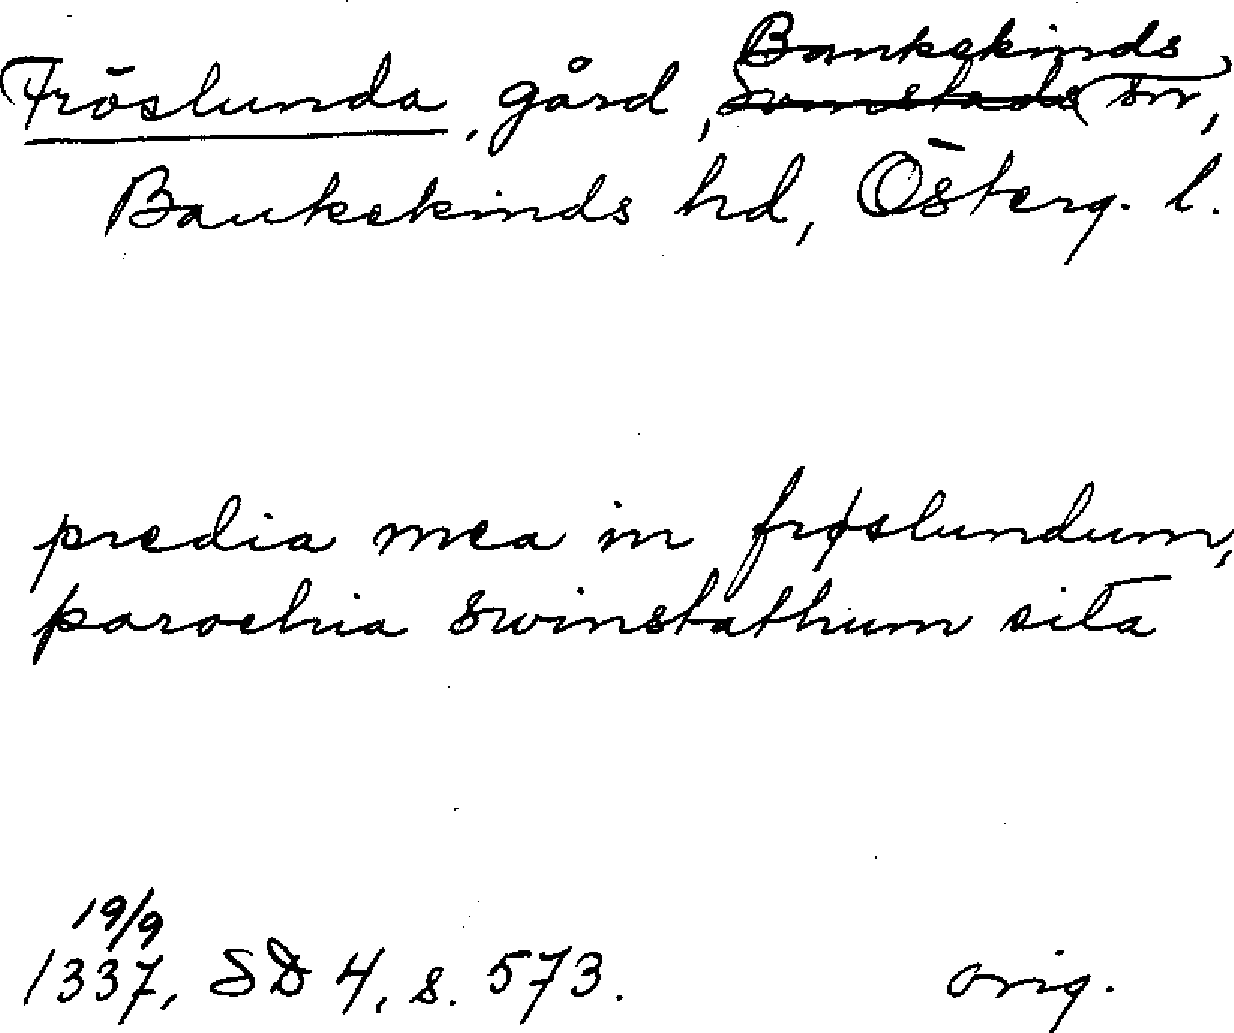 Fröslunda, gård, Bankekinds sn,
Bankekinds hd, Österg. l.
predia mea in frøslundum,
parochia swinstathum sita
19/9
1337, SD 4, s. 573. orig.